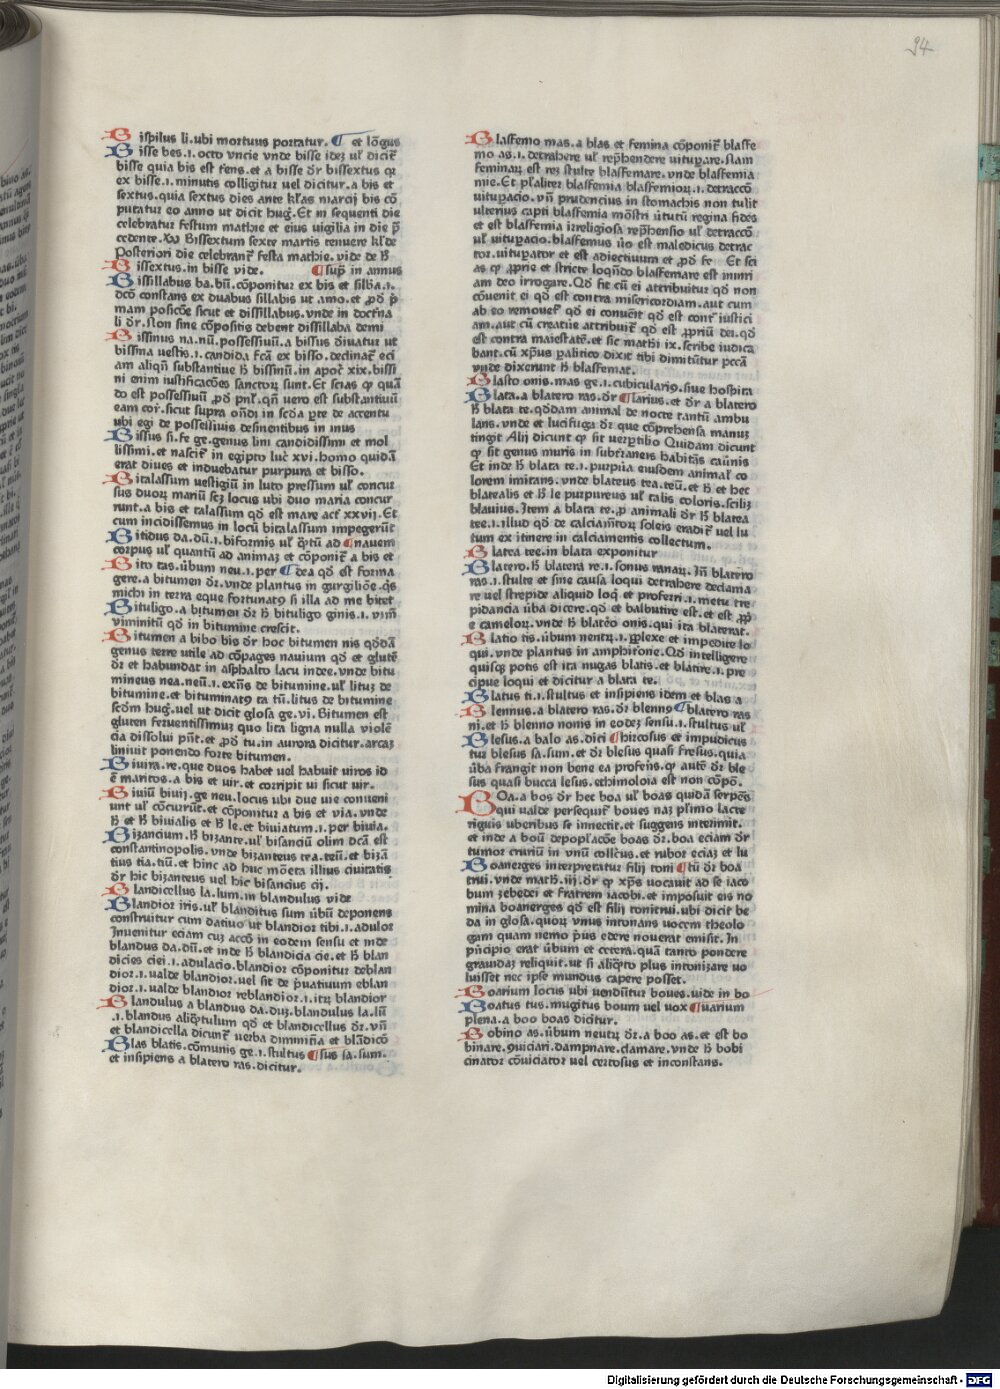 94
Bispilus li.ubi mortuus portatur. ¶ et lōgus
Bisse bes.i.octo vncie vnde bisse idez ul' dicit᷑
bisse quia bis est sens.et a bisse dr bissextus qr
ex bisse.i.minutis colligitur uel dicitur.a bis et
sextus.quia sextus dies ante kl'as marcij bis cō
putatur eo anno ut dicit hug̃.Et in sequenti die
celebratur festum mathie et eius uigilia in die p̃
cedente. Bissextum sexte martis tenuere kl'de
Posteriori die celebrant᷑ festa mathie.vide de B
Bissextus.in bisse vide. ¶ sup̃ in annus
Bissillabus ba.bū.cōponitur ex bis et silba.i.
dcō constans ex duabus sillabis ut amo.et ꝓd p̃
mam posicōe sicut et dissillabus.vnde in doctna
li dr.Non sine cōpositis debent dissillaba demi
Bissinus na.nū.possessiuū.a bissus diuatur ut
bissina uestis.i.candida fcā ex bisso.declinat᷑ eci
am aliqñ substantiue h̄ bissinū.in apoc̃ xix.bissi
ni enim iustificacōes sanctoꝝ sunt.Et scias ꝙ quā
do est possessiuū ꝓd pnl'.qñ uero est substantiuū
eam cor̃.sicut supra ondi in scda p̱te de accentu
ubi egi de possessiuis desinentibus in inus
Bissus si.fe ge.genus lini candidissimi et mol
lissimi.et nascit᷑ in egipto luc̃ xvi.homo quidā
erat diues et induebatur purpura et bisso.
Bitalassum uestigiū in luto pressum ul' concur
sus duoꝝ mariū scz locus ubi duo maria concur
runt.a bis et talassum qd est mare act᷑ xxvij.Et
cum incidissemus in locū bitalassum impegerūt
Bitidus da.dū.i.biformis ul' q̃tū ad ¶nauem
corpus ul' quantū ad animaz et cōponit᷑ a bis et
Bito tas.ūbum neu.i.per ¶ dea qd est forma
gere.a bitumen dr.vnde plantus in gurgiliōe.q̃s
michi in terra eque fortunatꝰ si illa ad me bitet
Bituligo.a bitumen dr h̄ bituligo ginis.i.vim̃
viminitū qd in bitumine crescit.
Bitumen a bibo bis dr hoc bitumen nis qddā
genus terre utile ad cōpages nauium qd et glutē
dr et habundat in asphalto lacu indee.vnde bitu
mineus nea.neū.i.exñs de bitumine.ul' lituz de
bitumine.et bituminatꝰ ta tū.litus de bitumine
scdm hug̃.uel ut dicit glosa ge.vi.Bitumen est
gluten feruentissimuz quo lita ligna nulla violē
cia dissolui pñt.et ꝓd tu.in aurora dicitur.arcaz
liniuit ponendo forte bitumen.
Biuira.re.que duos habet uel habuit uiros id
ē maritos.a bis et uir.et corripit ui sicut uir.
Biuiū biuij.ge neu.locus ubi due uie conueni
unt ul' cōcurrūt.et cōponitur a bis et via.vnde
h̄ et h̄ biuialis et h̄ le.et biuiatum.i.per biuia.
Bizancium.h̄ bizante.ul' bisanciū olim dcā est
constantinopolis.vnde bizanteus tea.teū.et bizā
tius tia.tiū.et hinc ad huc mōeta illius ciuitatis
dr hic bizanteus uel hic bisancius cij.
Blandicellus la.lum.in blandulus vide
Blandior iris.ul' blanditus sum ūbū deponens
construitur cum datiuo ut blandior tibi.i.adulor
Inuenitur eciam cuz accō in eodem sensu et inde
blandus da.dū.et inde h̄ blandicia cie.et h̄ blan
dicies ciei.i.adulacio.blandior cōponitur deblan
dior.i.ualde blandior.uel sit de p̃uatiuum eblan
dior.i.ualde blandior reblandior.i.itꝝ blandior
Blandulus a blandus da.duz.blandulus la.lū
.i.blandus aliq̃tulum qd et blandicellus dr.vñ
et blandicella dicunt᷑ uerba diminūta et blādicō
Blas blatis.cōmunis ge.i.stultus ¶sus sa.sum.
et insipiens a blatero ras.dicitur.
Blasfemo mas.a blas et femina cōponit᷑ blasfe
mo as.i.detrahere ul' rep̃hendere uitup̱are.Nam
feminaꝝ est rez stulte blasfemare.vnde blasfemia
mie.Et pl'aliter blasfemia blasfemioꝝ.i.detraccō
uitup̱acio.vñ prudencius in stomachis non tulit
ulterius capti blasfemia mōstri ūtutū regina fides
et est blasfemia irreligiosa rep̃hensio ul' detraccō
ul' uitup̱acio.blasfemus ūo est maledicus detrac
tor.uitup̱ator et est adiectiuum et ꝓd fe Et sci
as ꝙ ꝓprie et stricte loqñdo blasfemare est iniuri
am deo irrogare.Qd fit cū ei attribuitur qd non
cōuenit ei qd est contra misericordiam.aut cum
ab eo remouet᷑ qd ei conueit qd est cont᷑ iustici
am.aut cū creatīe attribuit᷑ qd est ꝓpriū dei.qd
est contra maiestatē.et sic mathi ix.scribe iudica
bant.cū xp̃us ꝑalitico dixit tibi dimittūtur pccā
vnde dixerunt h̄ blasfemat.
Blasto onis.mas ge.i.cubiculariꝰ.siue hospita
Blata.a blatero ras.dr ¶larius.et dr a blatero
h̄ blata te.qddam animal de nocte tantū ambu
lans.vnde et lucifuga dr que cōprehensa manuz
tingit Alij dicunt ꝙ sit uesp̱tilio Quidam dicunt
ꝙ sit genus muris in subt᷑raneis habitās cauīnis
Et inde h̄ blata te.i.purpūa eiusdem animal' co
lorem imitans.vnde blateus tea.teū.et h̄ et hec
blatealis et h̄ le purpureus ul' talis coloris.scilz
blauius.Item a blata te.ꝓ animali dr h̄ blatea
tee.i.illud qd de calciamtoꝝ soleis eradit᷑ uel lu
tum ex itinere in calciamentis collectum.
Blatea tee.in blata exponitur
Blatero.h̄ blatera re.i.sonus ranaꝝ.Iñ blatero
ras.i.stulte et sine causa loqui detrahere declama
re uel strepide aliquid loq̃ et proferri.i.metu tre
pidancia ūba dicere.qd et balbutire est.et est ꝓp̃
e cameloꝝ.vnde h̄ blatēo onis.qui ita blaterat.
Blatio tis.ūbum nentꝝ.i.ꝑplexe et impedite lo
qui.vnde plantus in amphit᷑one.Qd intelligere
quisq̃ potis est ita nugas blatis.et blatire.i.pre
cipue loqui et dicitur a blata te.
Blatus ti.i.stultus et insipiens idem et blas a
Blennus.a blatero ras.dr blennꝰ ¶blatero ras
ni.et h̄ blenno nonis in eodez sensu.i.stultus ul'
Blesus.a balo as.dici ¶hircosus et impudicus
tur blesus sa.sum.et dr blesus quasi fresus.quia
ūba frangit non bene ea profens.ꝙ autē dr ble
sus quasi bucca lesus.ethimoloia est non cōpō.
BOa.a bos dr hec boa ul' boas quidā serpēs
qui ualde persequit᷑ boues naꝫ pl'imo lacte
riguis uberibus se innectit.et suggens interimit.
et inde a boū depopl'acōe boas dr.boa eciam dr
tumor cruriū in vnū collcūs.et rubor eciaz et lu
Boanerges interpretatur filij toni ¶tū dr boa
trui.vnde math̃.iij.dr ꝙ xp̃s uocauit ad se iaco
bum zebedei et fratrem iacobi.et imposuit eis no
mina boanerges qd est filij tonitrui.ubi dicit be
da in glosa.quoꝝ vnus intonans uocem theolo
gam quam nemo p̃us edere nouerat emisit.In
p̃ncipio erat ūbum et cetera.quā tanto pondere
grauidaz reliquit.ut si aliq̃to plus intonizare uo
luisset nec ipse mundus capere posset.
Boarium locus ubi vendūtur boues.uide in bo
Boatus tus.mugitus boum uel uox ¶uarium
plena.a boo boas dicitur.
Bobino as.ūbum neutꝝ dr.a boo as.et est bo
binare.ꝯuiciari.dampnare.clamare.vnde h̄ bobi
cinator cōuiciator uel certosus et inconstans.
Digitalisierung gefördert durch die Deutsche Forschungsgemeinschaft - DFG